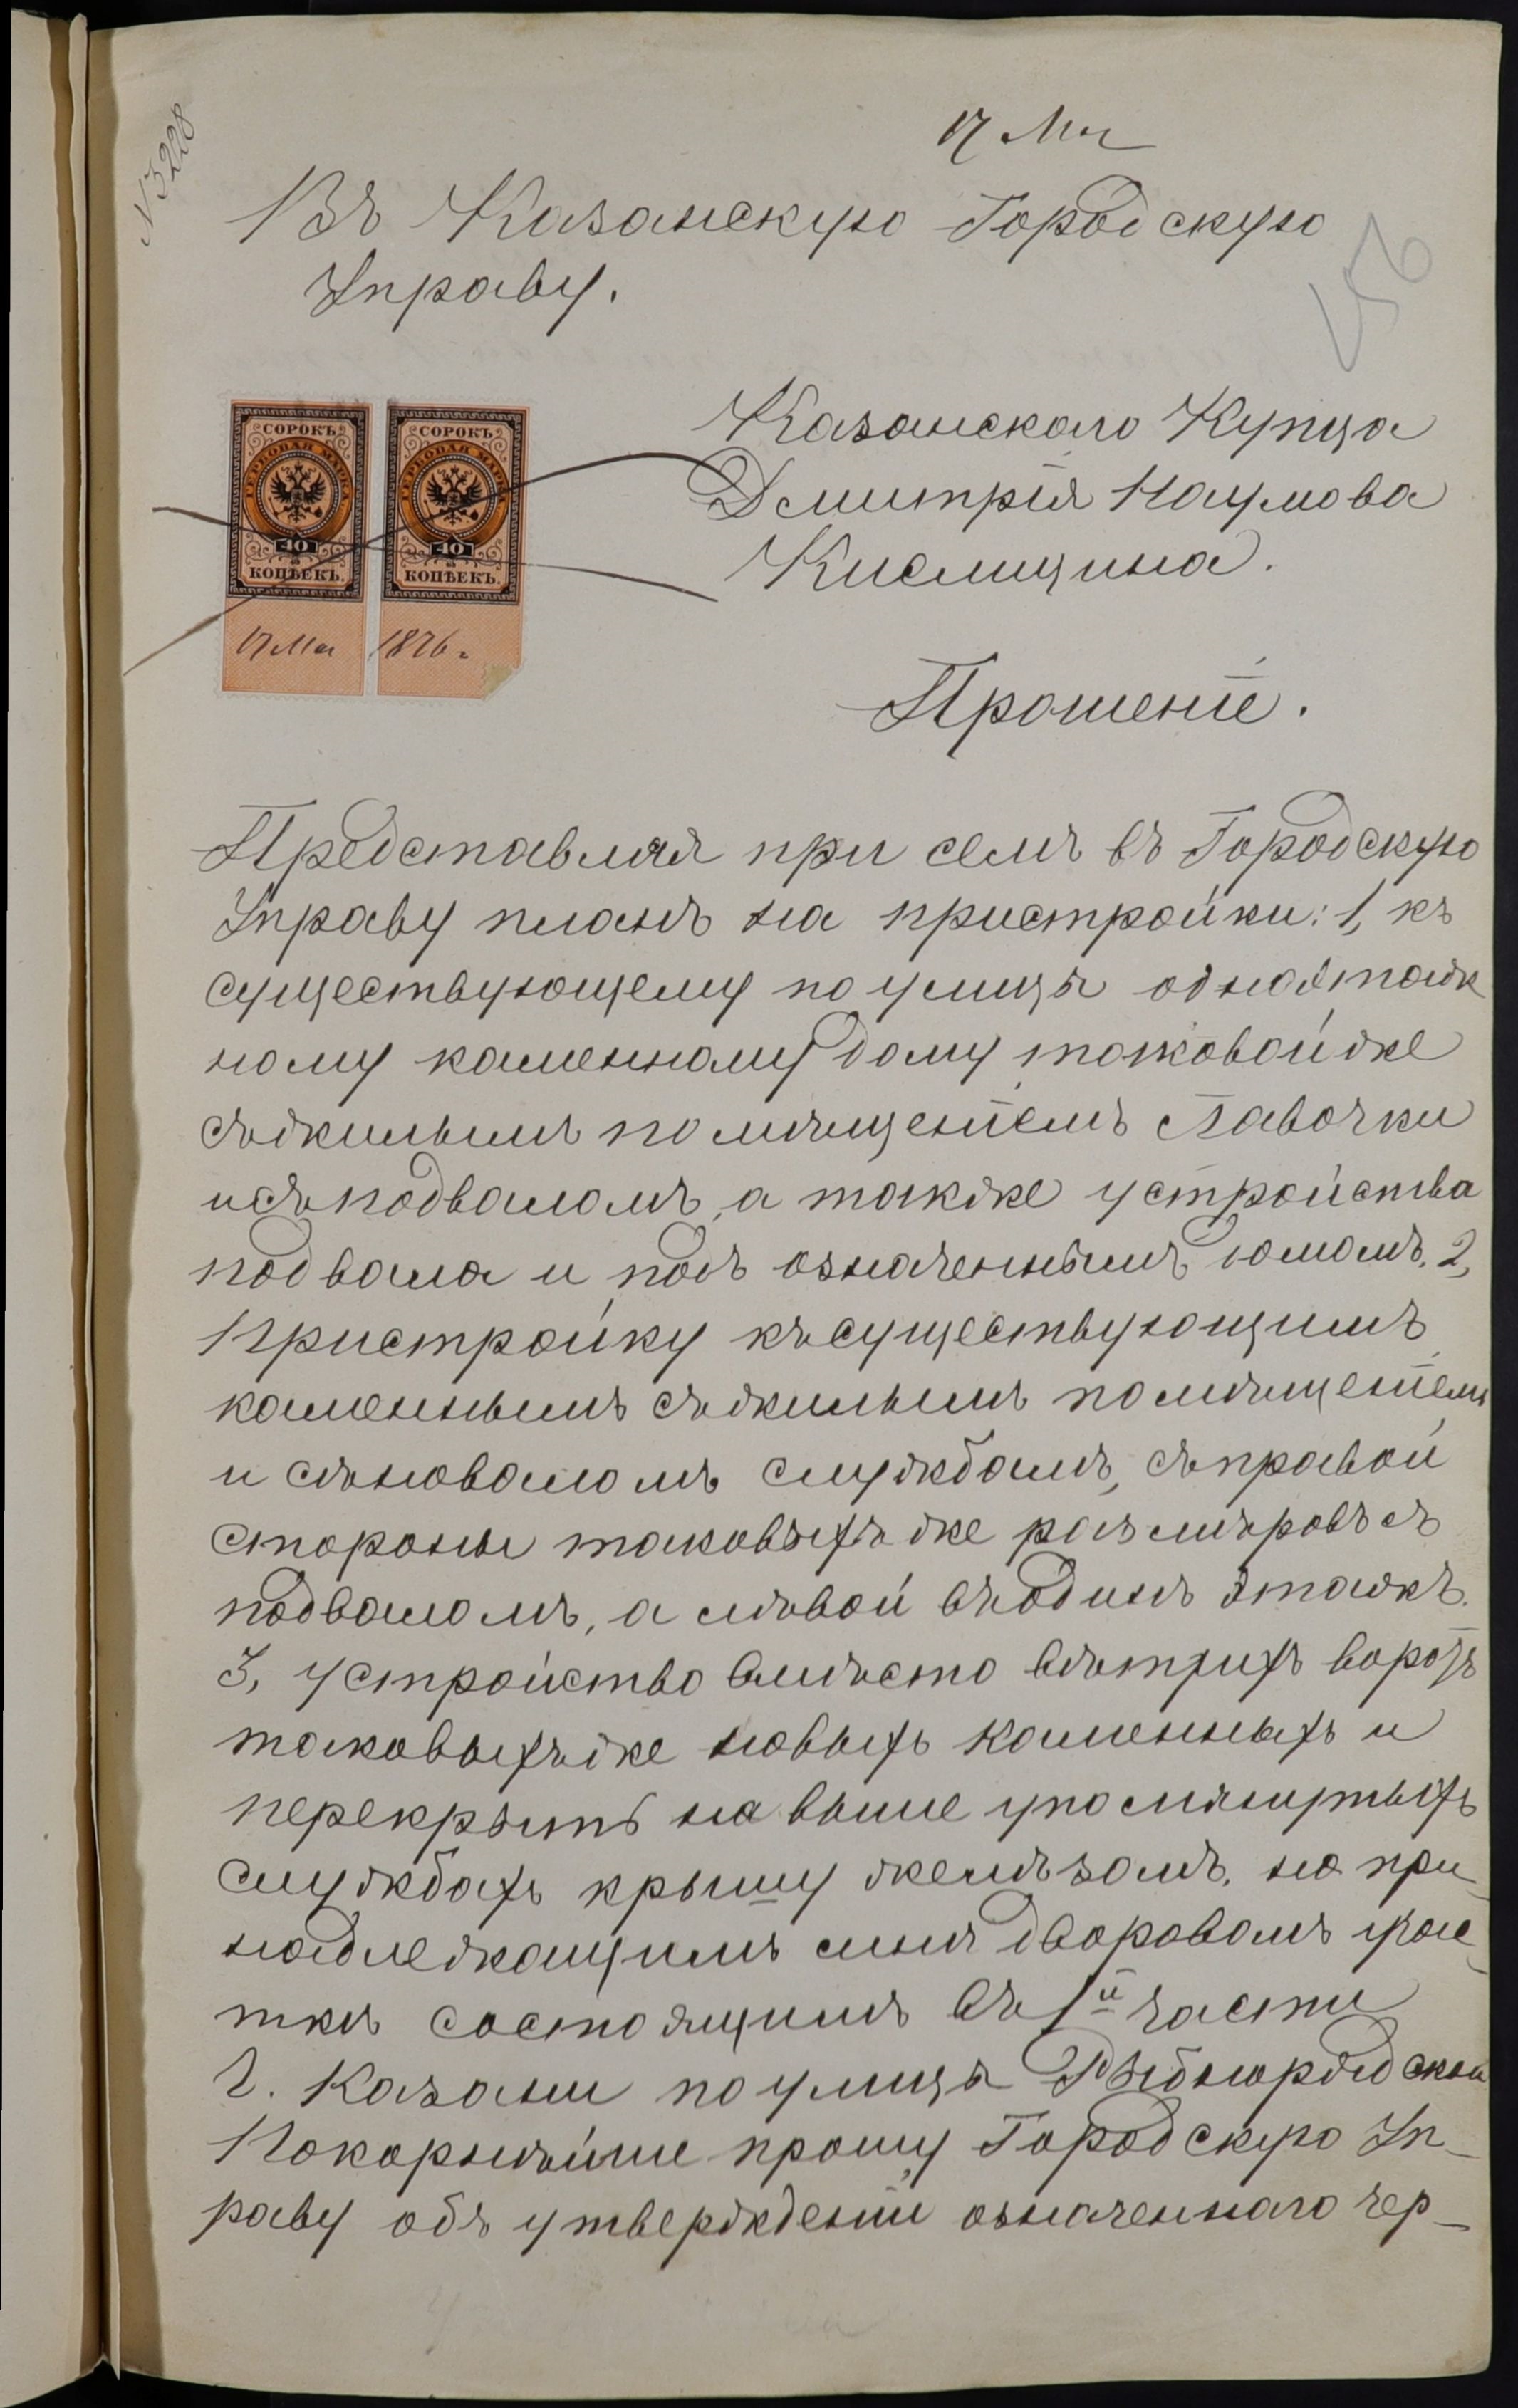 17 Мая
N 3228
Въ Казанскую Городскую
Управу.
56
СОРОКЪ СОРОКЪ
ГЕРБОВАЯ МАРКА ГЕРБОВАЯ МАРКА
40 40
КОПѢЕКЪ. КОПѢЕКЪ.
17 Мая 1876 г
Казанскаго Купца
Дмитрія Наумова
Кислицина.
Прошеніе.
Представляя при семъ въ Городскую
Управу планъ на пристройки: 1, къ
существующему по улицѣ одноэтаж
ному каменному дому таковой же
съ жилымъ помѣщеніемъ лавочки
и съ подваломъ, а также устройства
подвала и подъ означеннымъ домомъ. 2,
Пристройку къ существующимъ
каменнымъ съ жилымъ помѣщеніемъ
и сѣноваломъ службамъ, съ правой
стороны таковыхъ же размѣровъ съ
подваломъ, а лѣвой въ одинъ этажъ.
3, устройство вмѣсто ветхихъ воротъ
таковыхъ же новыхъ каменныхъ и
перекрыть на выше упомянутыхъ
службахъ крышу желѣзомъ, на при-
надлежащимъ мнѣ дворовомъ учас-
ткѣ состоящимъ въ 1й части
г. Казани по улицѣ Рыбнорядской
Покорнѣйше прошу Городскую Уп-
раву объ утвержденіи означеннаго чер-